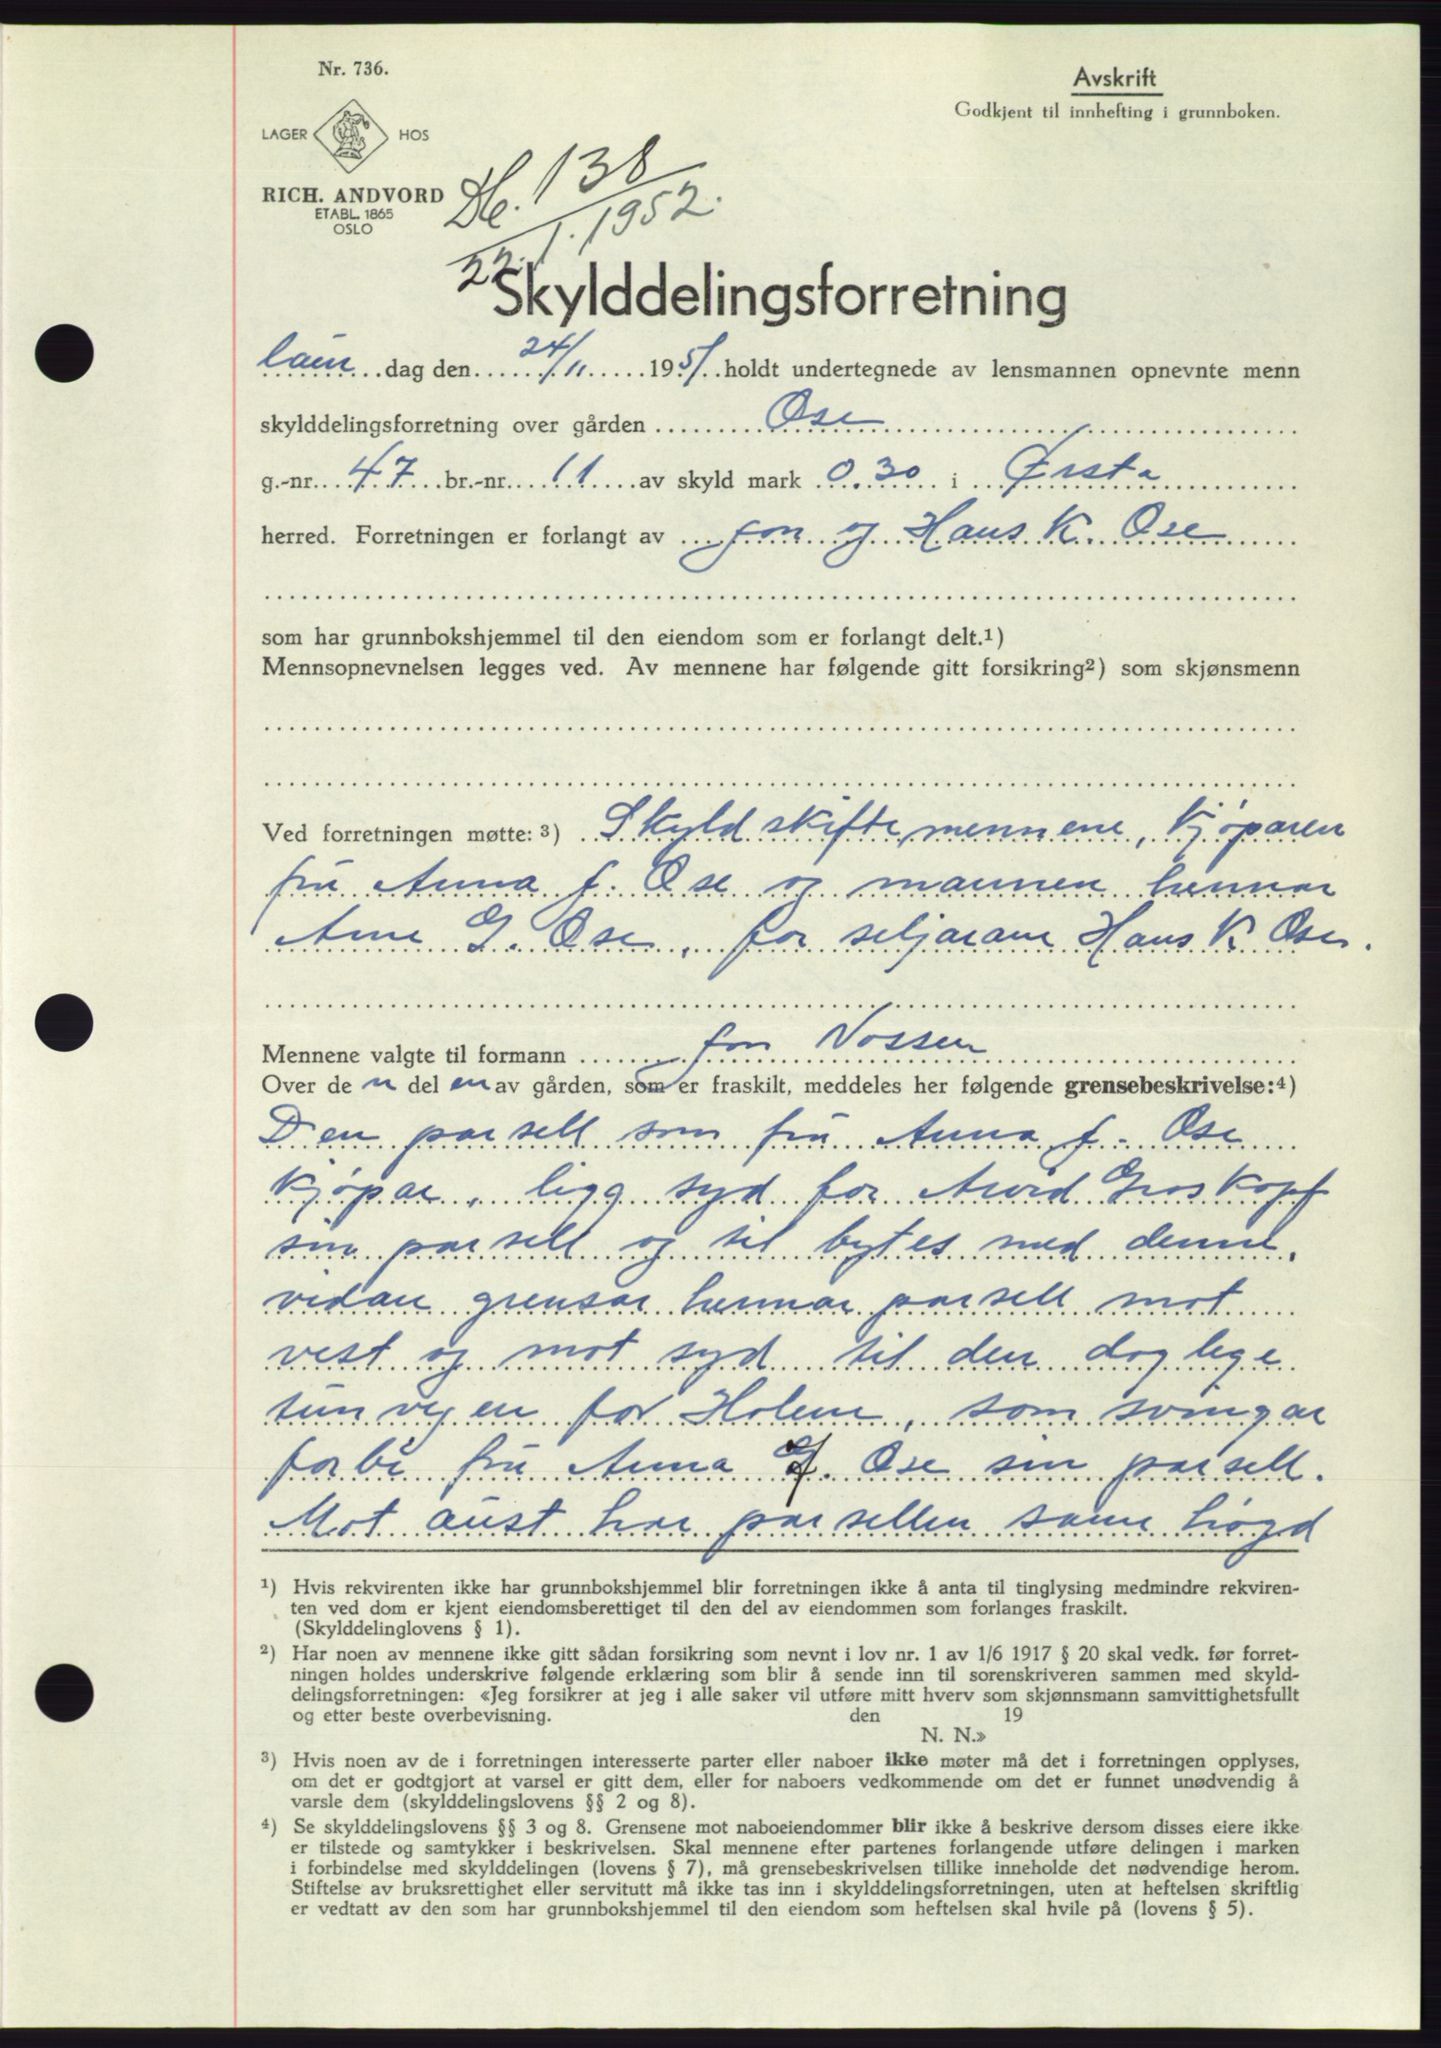 Nr. 736.
Avskrift
Godkjent til innhefting i grunnboken.
LAGER HOS
RICH. ANDVORD
ETABL. 1865
OSLO
Db. 138
22. 1. 1952.
Skylddelingsforretning
laur dag den 24/11 1951 holdt undertegnede av lensmannen opnevnte menn
skylddelingsforretning over gården Ose
g.-nr. 47 br.-nr. 11 av skyld mark 0.30 i Ørsta
herred. Forretningen er forlangt av Jon og Hans K. Ose
som har grunnbokshjemmel til den eiendom som er forlangt delt.¹)
Mennsopnevnelsen legges ved. Av mennene har følgende gitt forsikring²) som skjønsmenn
Ved forretningen møtte: ³) Skyldskiftemennene, kjøparen
fru Anna J. Ose og mannen hennar
Arne G. Ose, for seljarane Hans K Ose.
Mennene valgte til formann Jon Vossen
Over de n del en av gården, som er fraskilt, meddeles her følgende grensebeskrivelse: ⁴)
Den parsell som fru Anna J. Ose
kjøpar, ligg syd for Arvid Groskopf
sin parsell og til bytes med denne,
vidare grensar hennar parsell mot
vest og mot syd til den daglege
tunvegen for Holene, som svingar
forbi fru Anna J. Ose sin parsell.
Mot aust har parsellen same høgd
¹) Hvis rekvirenten ikke har grunnbokshjemmel blir forretningen ikke å anta til tinglysing medmindre rekviren-
ten ved dom er kjent eiendomsberettiget til den del av eiendommen som forlanges fraskilt.
(Skylddelinglovens § 1).
²) Har noen av mennene ikke gitt sådan forsikring som nevnt i lov nr. 1 av 1/6 1917 § 20 skal vedk. før forret-
ningen holdes underskrive følgende erklæring som blir å sende inn til sorenskriveren sammen med skyld-
delingsforretningen: «Jeg forsikrer at jeg i alle saker vil utføre mitt hverv som skjønnsmann samvittighetsfullt
og etter beste overbevisning. den 19
N. N.»
³) Hvis noen av de i forretningen interesserte parter eller naboer ikke møter må det i forretningen opplyses,
om det er godtgjort at varsel er gitt dem, eller for naboers vedkommende om det er funnet unødvendig å
varsle dem (skylddelingslovens §§ 2 og 8).
⁴) Se skylddelingslovens §§ 3 og 8. Grensene mot naboeiendommer blir ikke å beskrive dersom disses eiere ikke
er tilstede og samtykker i beskrivelsen. Skal mennene efter partenes forlangende utføre delingen i marken
i forbindelse med skylddelingen (lovens § 7), må grensebeskrivelsen tillike inneholde det nødvendige herom.
Stiftelse av bruksrettighet eller servitutt må ikke tas inn i skylddelingsforretningen, uten at heftelsen skriftlig
er vedtatt av den som har grunnbokshjemmel til den eiendom som heftelsen skal hvile på (lovens § 5).